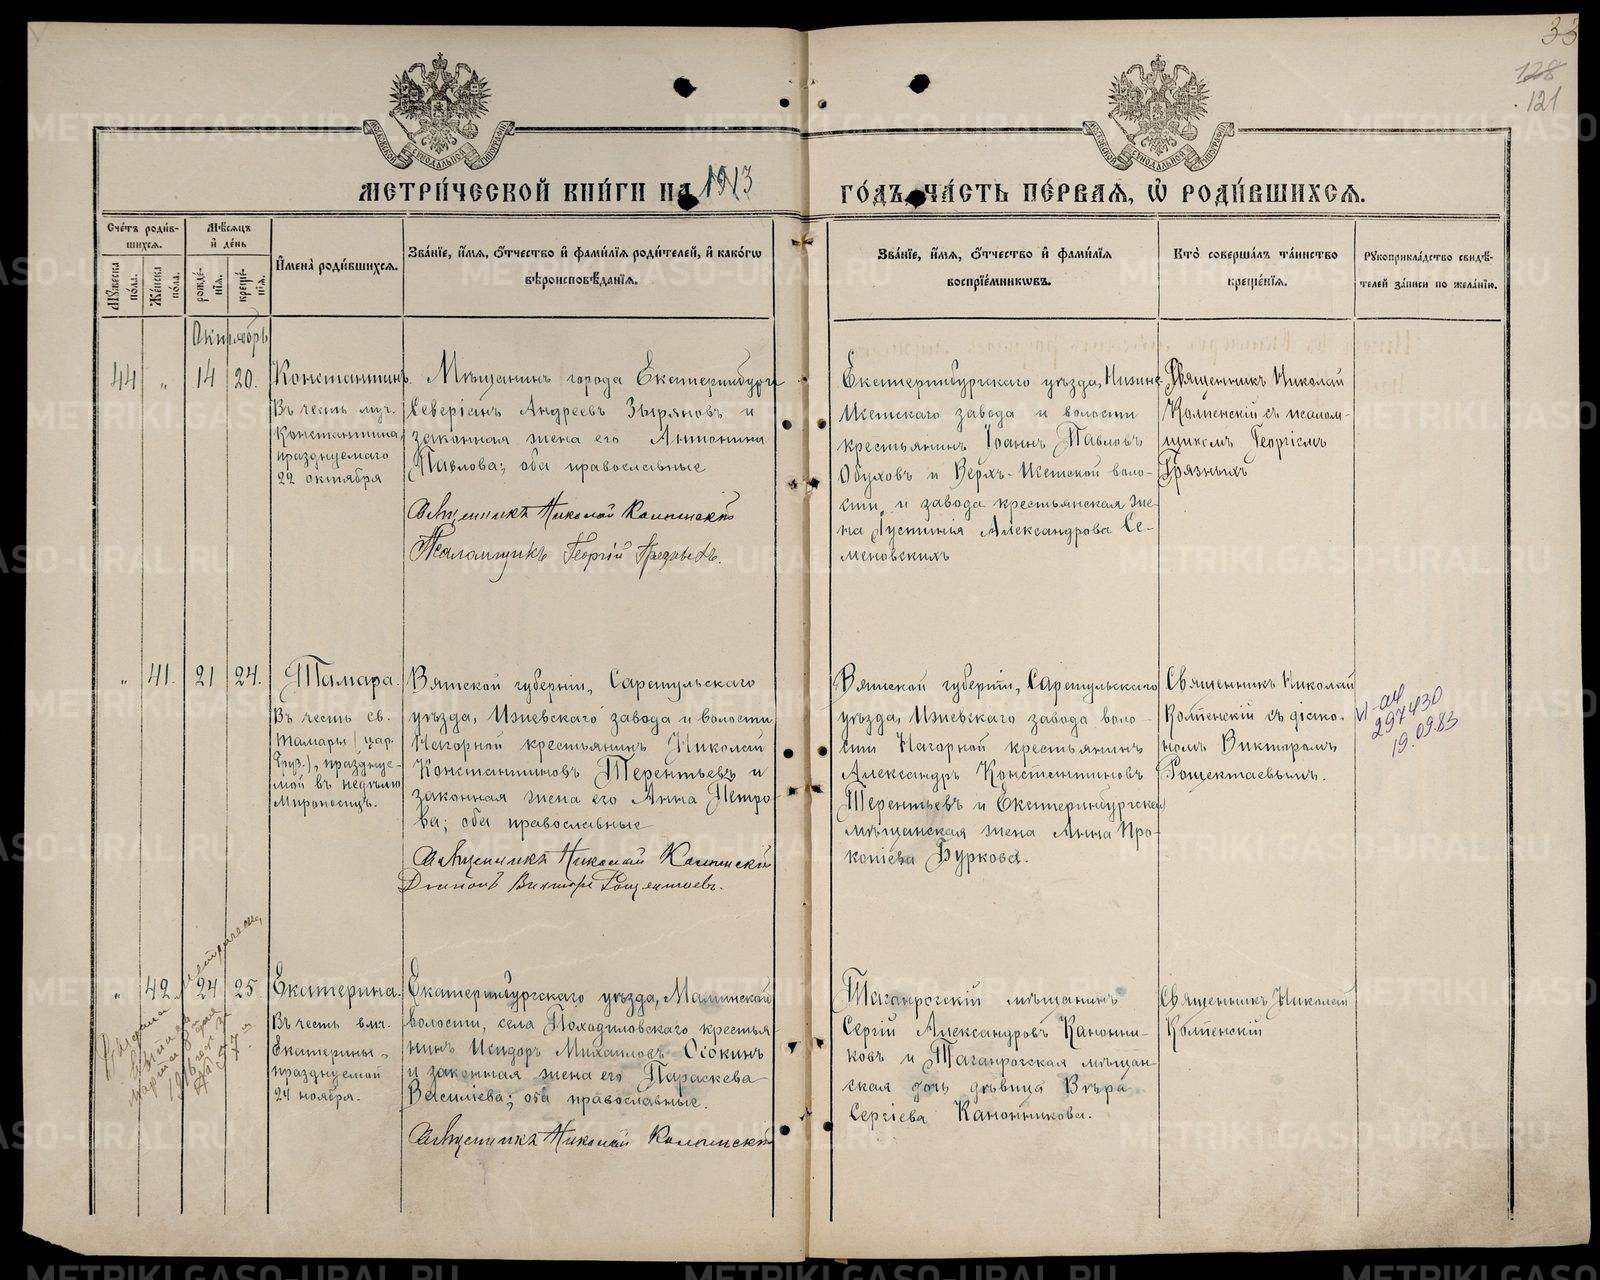 33
128
121
МОСКОВСКОЙ СѴНОДАЛЬНОЙ ТИПОГРАФІИ
МОСКОВСКОЙ СѴНОДАЛЬНОЙ ТИПОГРАФІИ
МЕТРИ́ЧЕСКОЙ КНИ́ГИ НА 1913
ГО́ДЪ, ЧА́СТЬ ПЕ́РВАѦ, Ѡ҆ РОДИ́ВШИХСѦ.
Сче́тъ роди́в-
шихсѧ.
Мꙋжеска по́ла.
Же́нска по́ла.
Мѣ́сѧцъ
и҆ де́нь
рожде́-
нїѧ.
креще́-
нїѧ.
И҆мена̀ роди́вшихсѧ.
Зва́нїе, и҆́мѧ, ѻ҆́тчество и҆ фами́лїѧ роди́телей, и҆ како́гѡ
вѣроисповѣ́данїѧ.
Зва́нїе, и҆́мѧ, ѻ҆́тчество и҆ фами́лїѧ
воспрїе́мникѡвъ.
Кто̀ соверша́лъ та́инство
креще́нїѧ.
Рꙋкоприкла́дство свидѣ́-
телей за́писи по жела́нїю.
Октябрь
44 „ 14 20.
Константинъ.
Въ честь муч.
Константина,
празднуемаго
22 октября
Мѣщанинъ города Екатеринбурга
Северіанъ Андреевъ Зыряновъ и
законная жена его Антонина
Павлова; оба православные
Священникъ Николай Колпенскій
Псаломщикъ Георгій Грязныхъ.
Екатеринбургскаго уѣзда, Нижне-
Исетскаго завода и волости
крестьянинъ Іоаннъ Павловъ
Обуховъ и Верх-Исетской воло-
сти и завода крестьянская же-
на Іустинія Александрова Се-
меновскихъ
Священникъ Николай
Колпенскій съ псалом-
щикомъ Георгіемъ
Грязныхъ
„ 41. 21 24.
Тамара.
Въ честь св.
Тамары (цар.
Груз.), праздную-
мой въ недѣлю
Мироносицъ.
Вятской губерніи, Сарапульскаго
уѣзда, Ижевскаго завода и волости
Нагорной крестьянинъ Николай
Константиновъ Терентьевъ и
законная жена его Анна Петро-
ва; оба православные
Священникъ Николай Колпенскій
Діаконъ Викторъ Рощектаевъ.
Вятской губерніи, Сарапульскаго
уѣзда, Ижевскаго завода воло-
сти Нагорной крестьянинъ
Александръ Константиновъ
Терентьевъ и Екатеринбургская
мѣщанская жена Анна Про-
копіева Буркова.
Священникъ Николай
Колпенскій съ діако-
номъ Викторомъ
Рощектаевымъ.
VI-АИ
297430
19.09.83
„ 42. 24 25.
Екатерина.
Въ честь вмч.
Екатерины,
празднуемой
24 ноября.
Екатеринбургскаго уѣзда, Маминской
волости, села Походиловскаго крестья-
нинъ Исидоръ Михаиловъ Осокинъ
и законная жена его Параскева
Василіева; оба православные.
Священникъ Николай Колпенскій
Таганрогскій мѣщанинъ
Сергій Александровъ Канонни-
ковъ и Таганрогская мѣщан-
ская дочь дѣвица Вѣра
Сергіева Канонникова.
Священникъ Николай
Колпенскій